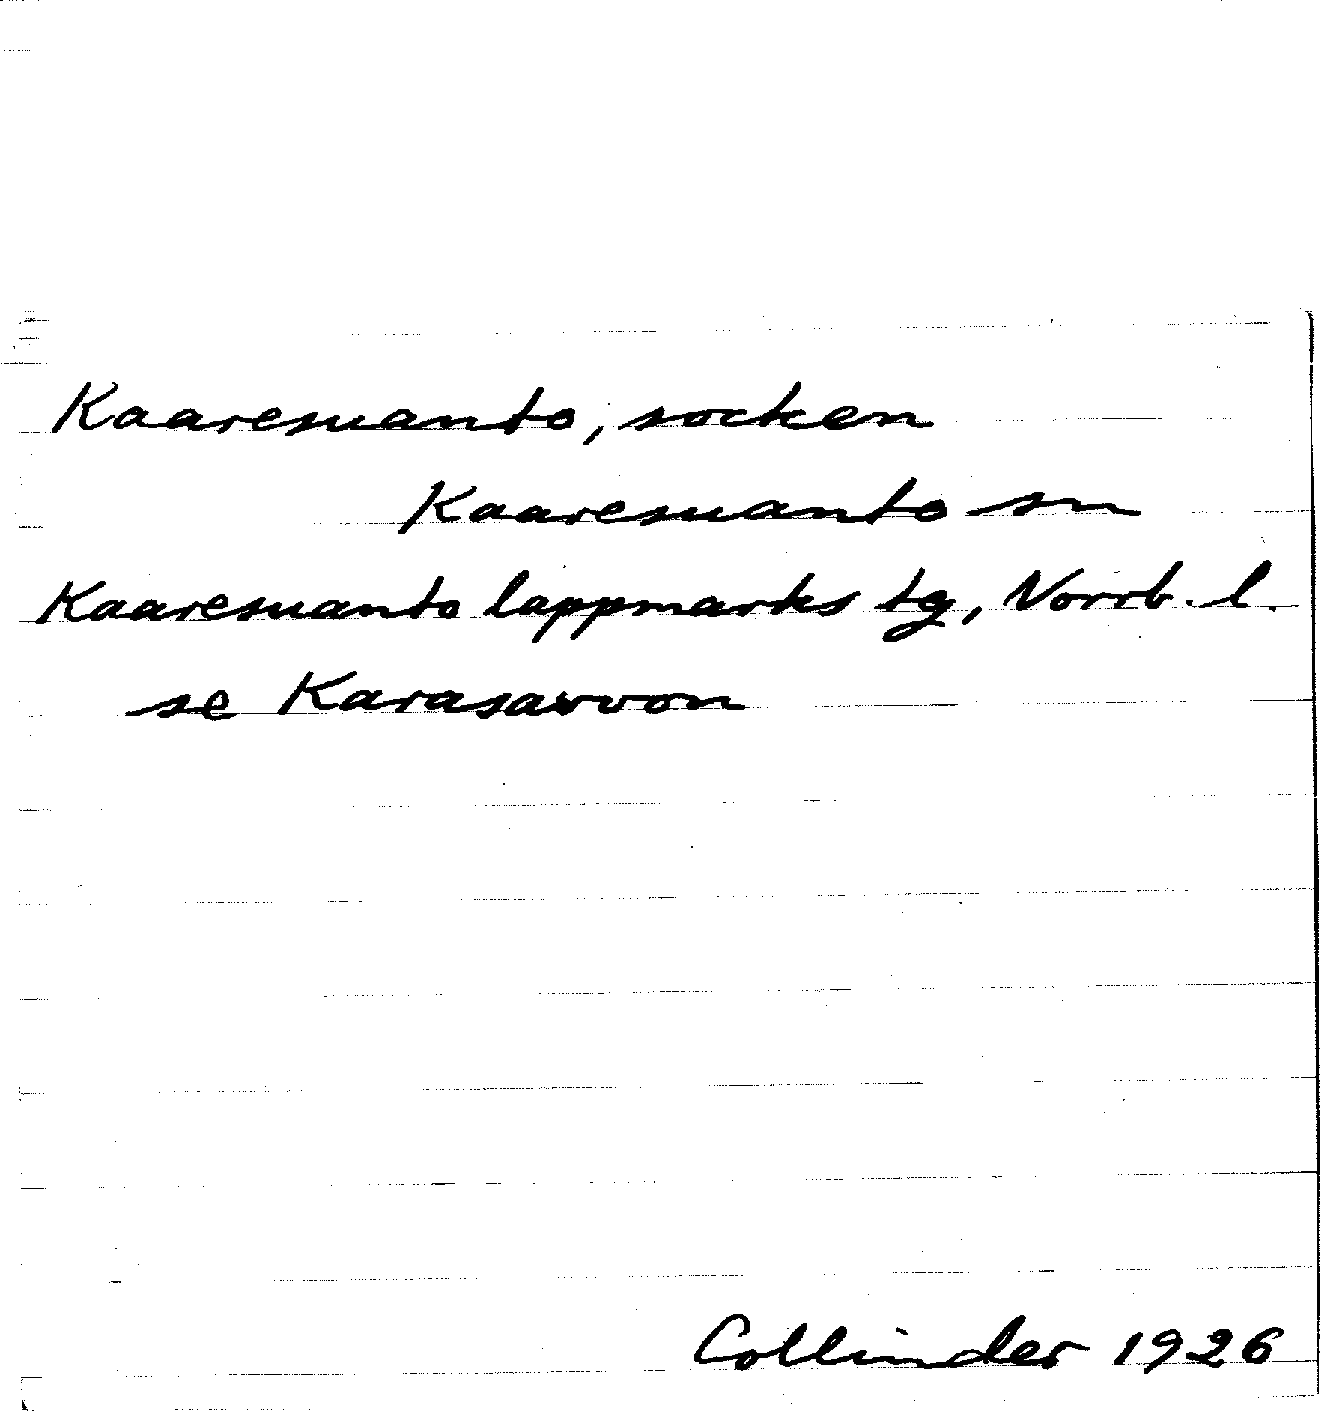 Kaaresuanto, socken
Kaaresuanto sn
Kaaresuanto lappmarks tg, Norrb. l.
se Karasavvon
Collinder 1926